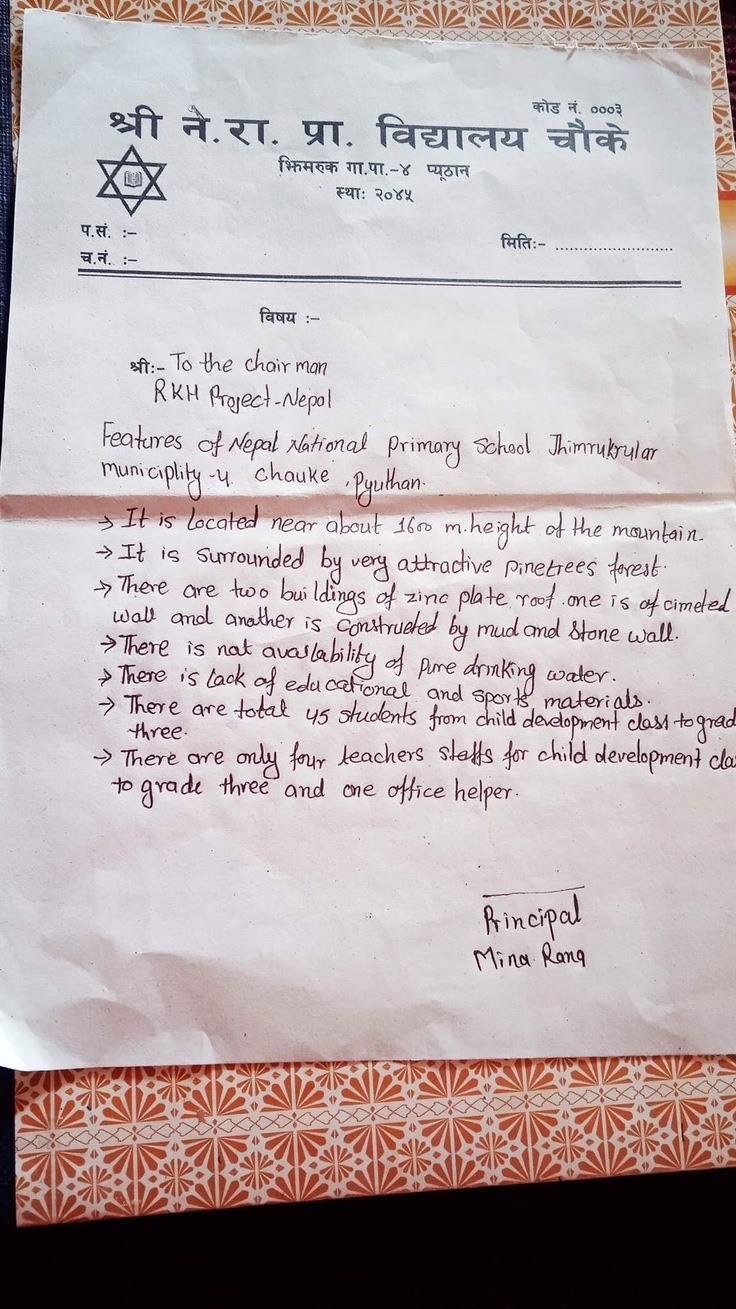 कोड नं. ०००३
श्री ने.रा. प्रा. विद्यालय चौके
झिमरुक गा.पा.-४ प्यूठान
स्था: २०४५
प.सं. :-
मिति:- ........................
च.नं. :-
विषय :-
श्री:- To the chairman
RKH Project-Nepal
Features of Nepal National primary School Jhimrukrular
municiplity-4 Chauke, Pyuthan.
→ It is Located near about 1600 m.height of the mountain.
→ It is surrounded by very attractive pinetrees forest.
→ There are two buildings of zinc plate roof.one is of cimeted
wall and another is constructed by mud and stone wall.
→ There is not availability of pure drinking water.
→ There is lack of educational and sports materials.
→ There are total 45 students from child development class to grad
three.
→ There are only four teachers staffs for child development cla
to grade three and one office helper.
Principal
Mina Rana